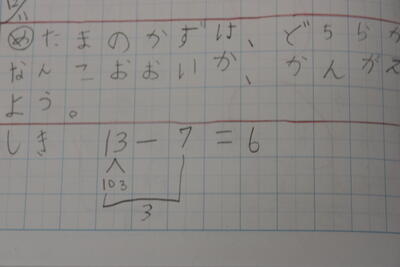 12/11
め たまのかずは、どちらが
なんこおおいか、かんがえ
よう。
しき 13-7=6
10 3
3